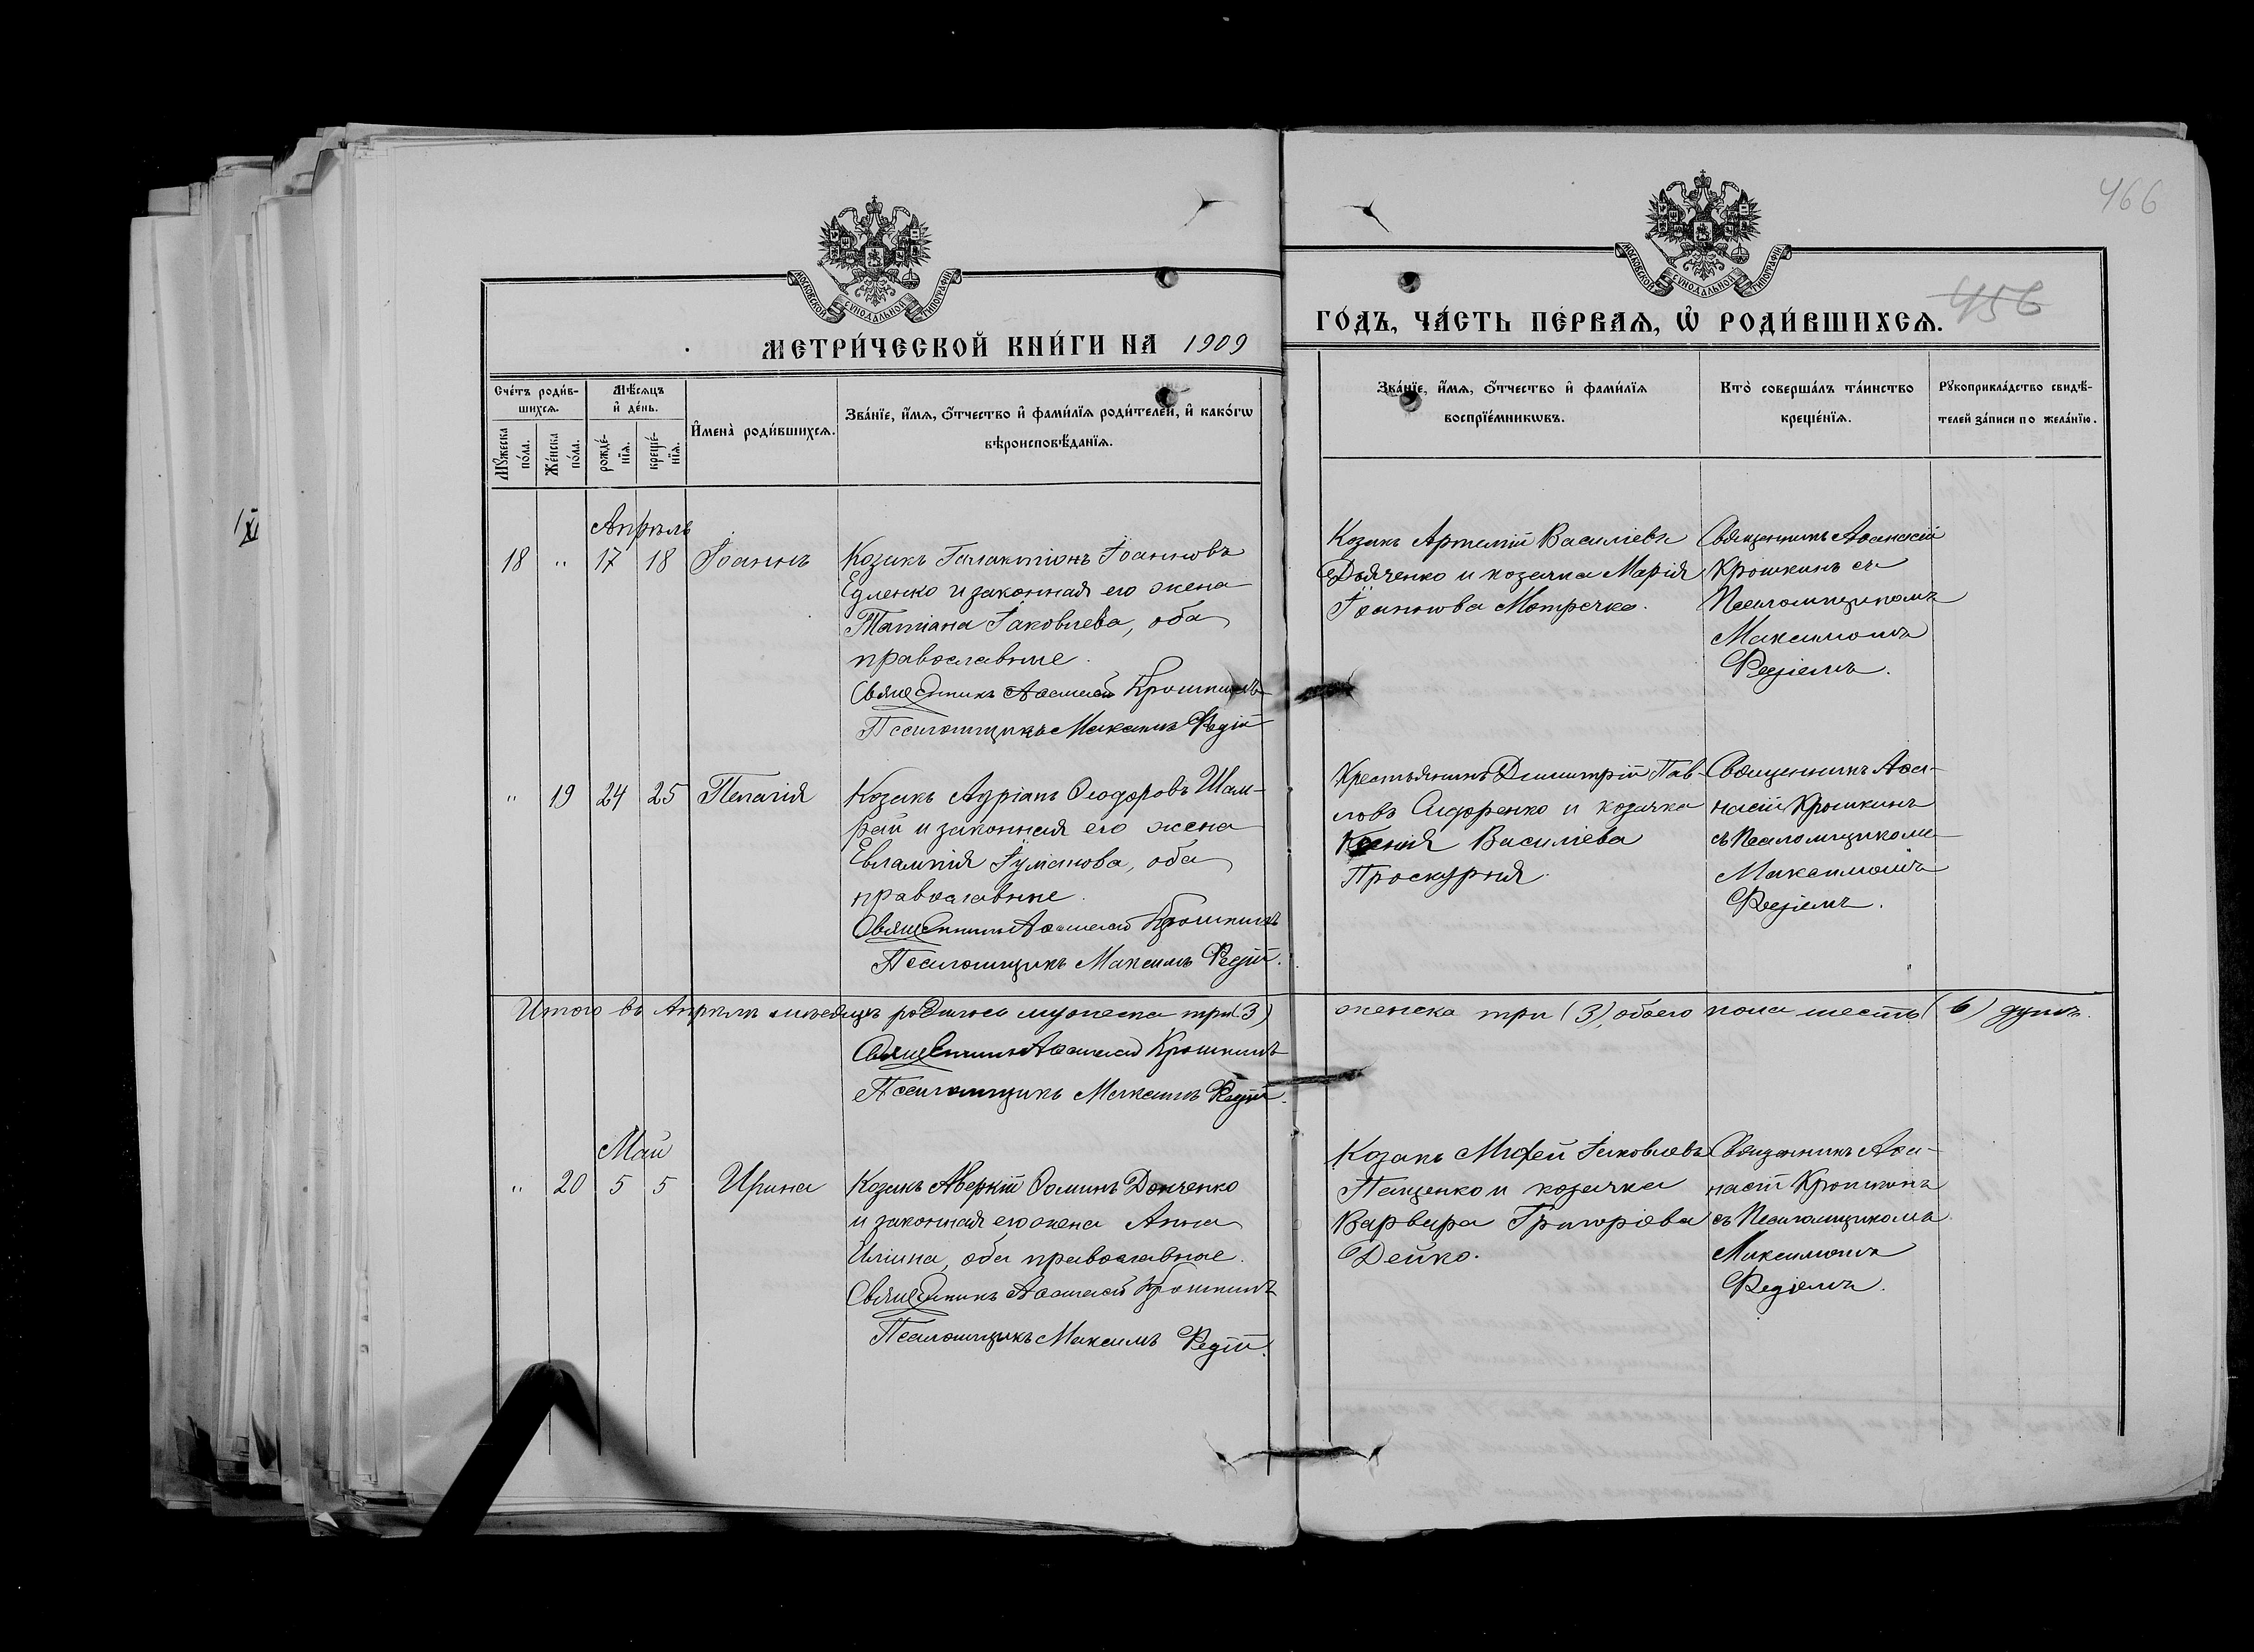 466
МОСКОВСКОЙ СУНОДАЛЬНОЙ ТИПОГРАФІИ
МОСКОВСКОЙ СУНОДАЛЬНОЙ ТИПОГРАФІИ
456
МЕТРИ́ЧЕСКОЙ КНИ́ГИ НА 1909
ГО́ДЪ, ЧА́СТЬ ПЕ́РВАѦ, Ѡ҆ РОДИ́ВШИХСѦ.
Сче́тъ роди́в-
шихсѧ.
Мꙋ́жеска по́ла.
Же́нска по́ла.
Мѣ́сѧцъ
и҆ де́нь.
рожде́-
нїѧ.
креще́-
нїѧ.
И҆мена̀ роди́вшихсѧ.
Зва́нїе, и҆́мѧ, ѻ҆́тчество и҆ фами́лїѧ роди́телей, и҆ како́гѡ
вѣроисповѣ́данїѧ.
Зва́нїе, и҆́мѧ, ѻ҆́тчество и҆ фами́лїѧ
воспрїе́мникѡвъ.
Кто̀ соверша́лъ та́инство
креще́нїѧ.
Рꙋкоприкла́дство свидѣ́-
телей за́писи по жела́нїю.
Апрѣль
18 " 17 18 Іоаннъ
Козакъ Галактіонъ Іоанновъ
Едленко и законная его жена
Татіана Іаковлева, оба
православные.
Священникъ Аѳанасій Крошкинъ
Псаломщикъ Максимъ Редій
Козакъ Артемій Василіевъ
Дьяченко и козачка Марія
Іоаннова Мотречко.
Священникъ Аѳанасій
Крошкинъ съ
Псаломщикомъ
Максимомъ
Редіемъ.
" 19 24 25 Пелагія
Козакъ Адріанъ Ѳеодоровъ Шам-
рай и законная его жена
Евлампія Іуліанова, оба
православные.
Священникъ Аѳанасій Крошкинъ
Псаломщикъ Максимъ Редій.
Крестьянинъ Димитрій Пав-
ловъ Сидоренко и козачка
Ксенія Василіева
Проскурня.
Священникъ Аѳа-
насій Крошкинъ
съ Псаломщикомъ
Максимомъ
Редіемъ.
Итого въ Апрѣлѣ мѣсяцѣ родилось мужеска три (3)
женска три (3), обоего пола шесть (6) душъ.
Священникъ Аѳанасій Крошкинъ
Псаломщикъ Максимъ Редій.
Май
" 20 5 5 Ирина
Козакъ Аверкій Ѳоминъ Донченко
и законная его жена Анна
Иліина, оба православные.
Священникъ Аѳанасій Крошкинъ
Псаломщикъ Максимъ Редій.
Козакъ Іаковлевъ
Пащенко и козачка
Варвара Григоріева
Дейко.
Священникъ Аѳа-
насій Крошкинъ
съ Псаломщикомъ
Максимомъ
Редіемъ.